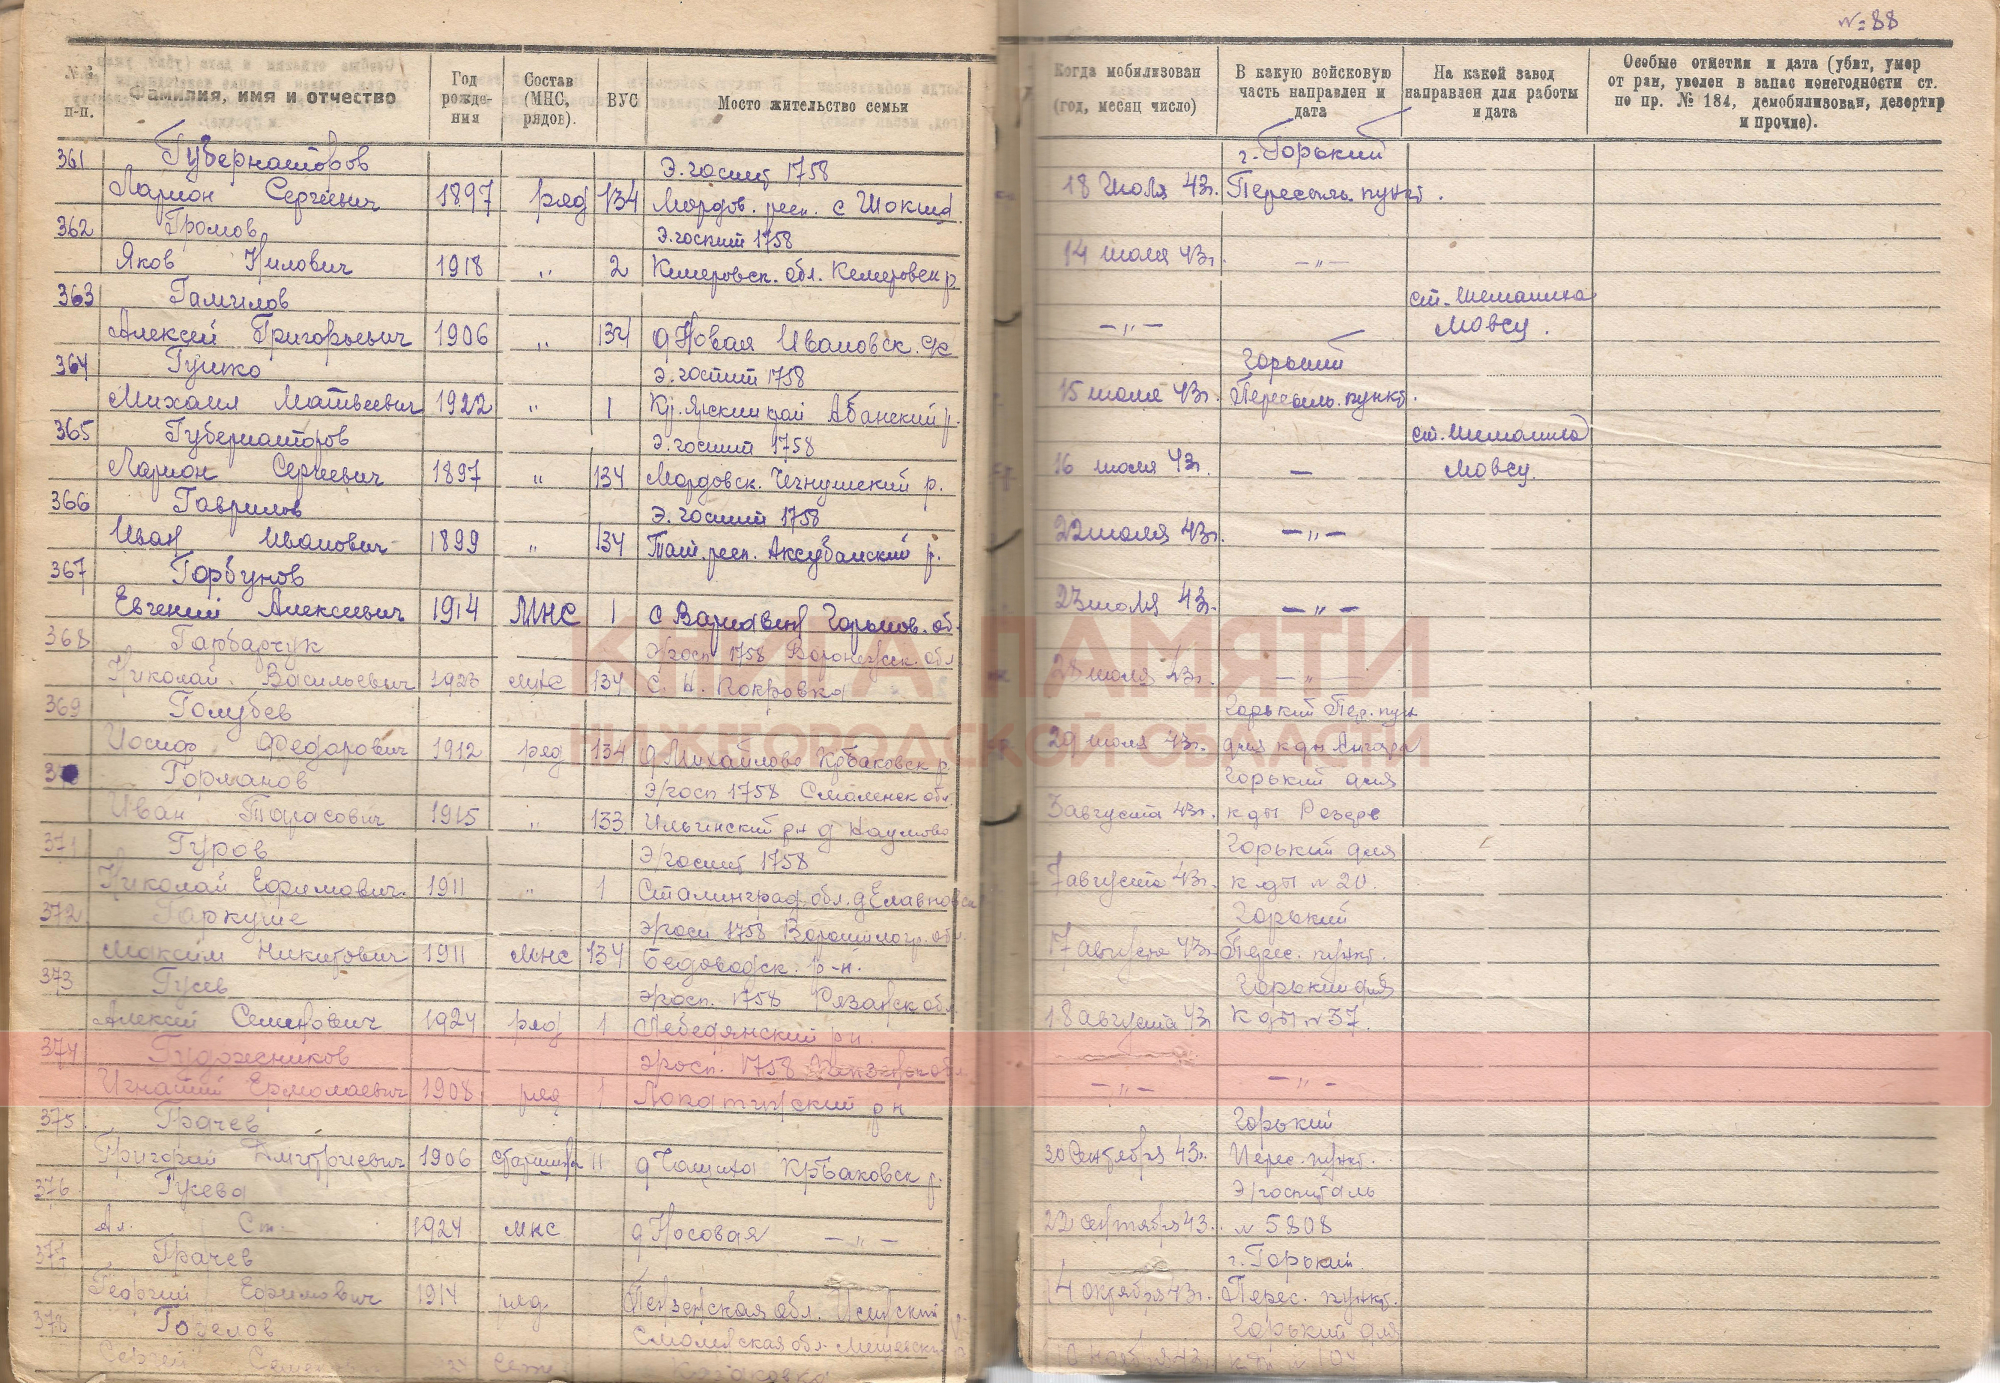 № 88
№№ п-п.
Фамилия, имя и отчество
Год рожде-ния
Состав (МНС, рядов).
ВУС
Место жительство семьи
Когда мобилизован (год, месяц число)
В какую войсковую часть направлен и дата
На какой завод направлен для работы и дата
Особые отметки и дата (убит, умер от ран, уволен в запас ионегодности ст. по пр. № 184, демобилизован, дезертир и прочие).
361 Губернаторов Э. госпит 1758 г. Горький
Ларион Сергеевич 1897 ряд 134 Мордов. респ. с Шокша 18 Июля 43г. Пересыль. пункт.
362 Громов Э. госпит 1758
Яков Нилович 1918 „ 2 Кемеровск. обл. Кемеровск р. 14 июля 43г. —„—
363 Гамилов ст. Шеманиха
Алексей Григорьевич 1906 „ 134 д Новая Ивановск. с/с —„— Мовсу.
364 Гушко Э. госпит 1758 Горький
Михаил Матвеевич 1922 „ 1 Кр. Ярский край Абанский р. 15 июля 43г. Пересыль. пункт.
365 Губернаторов Э. госпит 1758 ст. Шеманиха
Ларион Сергеевич 1897 „ 134 Мордовск. р. 16 июля 43г. — Мовсу.
366 Гаврилов Э. госпит 1758
Иван Иванович 1899 „ 134 Тат. респ. Аксубаиский р. 22 июля 43г. —„—
367 Горбунов
Евгений Алексеевич 1914 МНС 1 с Варнавин Горьков. об. 23 июля 43г. —„—
368 Гайворчук Э/госп 1758 Воронежск. обл
Николай Васильевич 1923 МНС 134 с. Н. Покровка 28 июля 43г. —„—
369 Голубев Горький Пер. пун
Иосиф Федорович 1912 ряд 134 д Михайлово Кр баковск р 29 июля 43г. для к-ды
Горманов Э/госп 1758 Смоленск обл. Горький для
Иван Тарасович 1915 „ 133 Ильинский рн д Наумово 3 августа 43г. к-ды
371 Гуров Э/госпит 1758 Горький для
Николай Ефимович 1911 „ 1 Сталинград. обл. 7 августа 43г. к-ды № 20.
372 Гаркуше Э/госп 1758 Ворошилогр. об Горький
Максим Никитович 1911 МНС 134 Бедоводск. р-н. 17 августа 43г. Перес. пункт.
373 Гусев Э/госп. 1758 Рязанск обл Горький для
Алексей Семенович 1924 ряд 1 Лебедянский рн. 18 августа 43 к-ды № 37.
374 Гудожников Э/госп. 1758 Пензенск обл
Игнатий Ермолаевич 1908 ряд 1 Лопатинский рн —„— —„—
375 Грачев Горький
Григорий Дмитриевич 1906 старшина 11 д Чащиха Кр Баковск р. 30 сентября 43г. Перес. пункт.
376 Гусева Э/госпиталь
Ал. Ст. 1924 МНС д Носовая —„— 22 сентября 43. № 5808
377 Грачев г. Горький
Георгий Ефимович 1914 ряд. Пензенская обл. 14 октября 43г. Перес. пункт.
378 Смоленская обл. Горький для
Сергей
КНИГА ПАМЯТИ
НИЖЕГОРОДСКОЙ ОБЛАСТИ